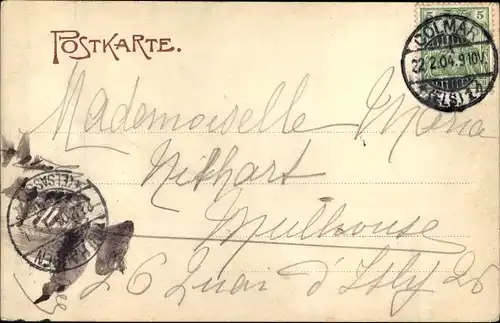 POSTKARTE.
5 5
COLMAR
22.2.04.9-10V.
(ELS) 1
Mademoiselle Maria
Nithart
Mulhouse
26 Quai d'Isly 26
(ELSASS)